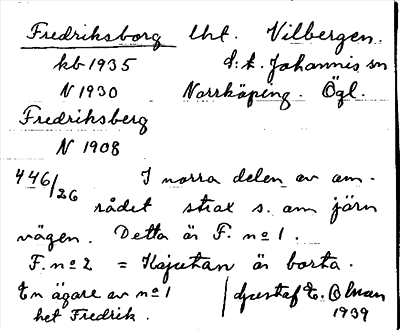 Fredriksborg lht. Vilbergen.
kb 1935 d:t. Johannis sn
N 1930 Norrköping. Ögl.
Fredriksberg
N 1908
446/26 I norra delen av om-
rådet strax s. om järn
vägen. Detta är F. nº 1.
F. nº 2 = Kajutan är borta.
En ägare av nº 1 Gustaf E. Olman
het Fredrik. 1939